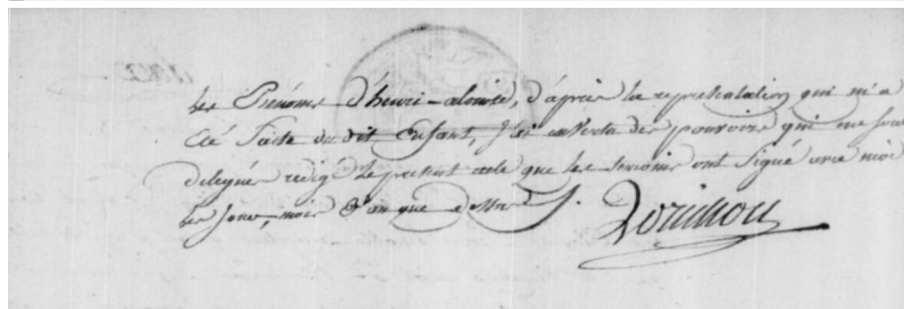 les Prénoms d'henri-aloïsse, d'après la représentation qui m'a
été faite du dit Enfant, J'ai en vertu des pouvoirs qui me sont
délégués rédigé le présent acte que les témoins ont signé avec moi
les jour, mois & an que dessus.